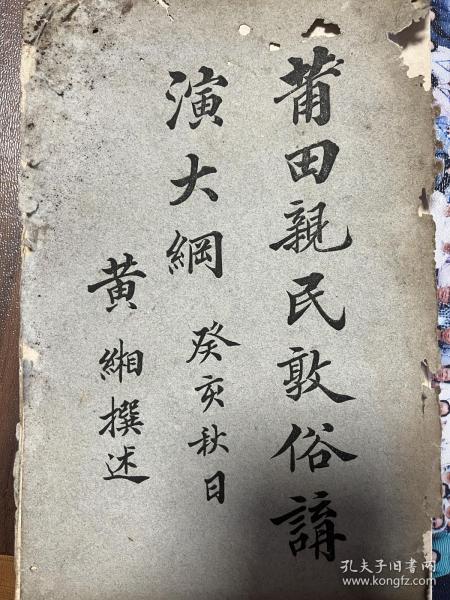 莆田親民敦俗講
演大綱 癸亥秋日
黄緗撰述
孔夫子旧书网
www.kongfz.com